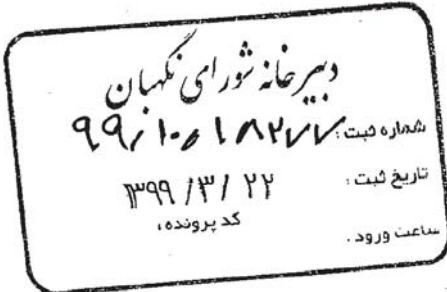 دبیرخانه شورای نگهبان
شماره ثبت: ۹۹/۱۰۵/۱۸۲۷۷
تاریخ ثبت: ۱۳۹۹/۳/۲۲
کد پرونده،
ساعت ورود.